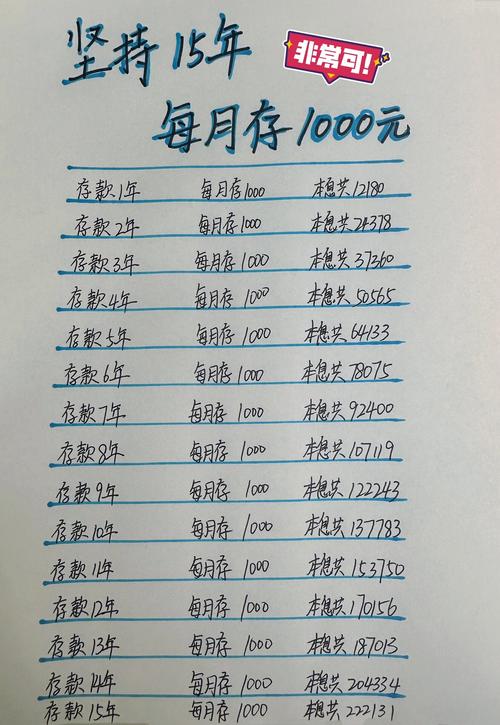 坚持15年
非常可!
每月存1000元
存款1年 每月存1000 本息共12180
存款2年 每月存1000 本息共24378
存款3年 每月存1000 本息共37260
存款4年 每月存1000 本息共50565
存款5年 每月存1000 本息共64133
存款6年 每月存1000 本息共78075
存款7年 每月存1000 本息共92400
存款8年 每月存1000 本息共107119
存款9年 每月存1000 本息共122243
存款10年 每月存1000 本息共137783
存款11年 每月存1000 本息共153750
存款12年 每月存1000 本息共170156
存款13年 每月存1000 本息共187013
存款14年 每月存1000 本息共204334
存款15年 每月存1000 本息共222131